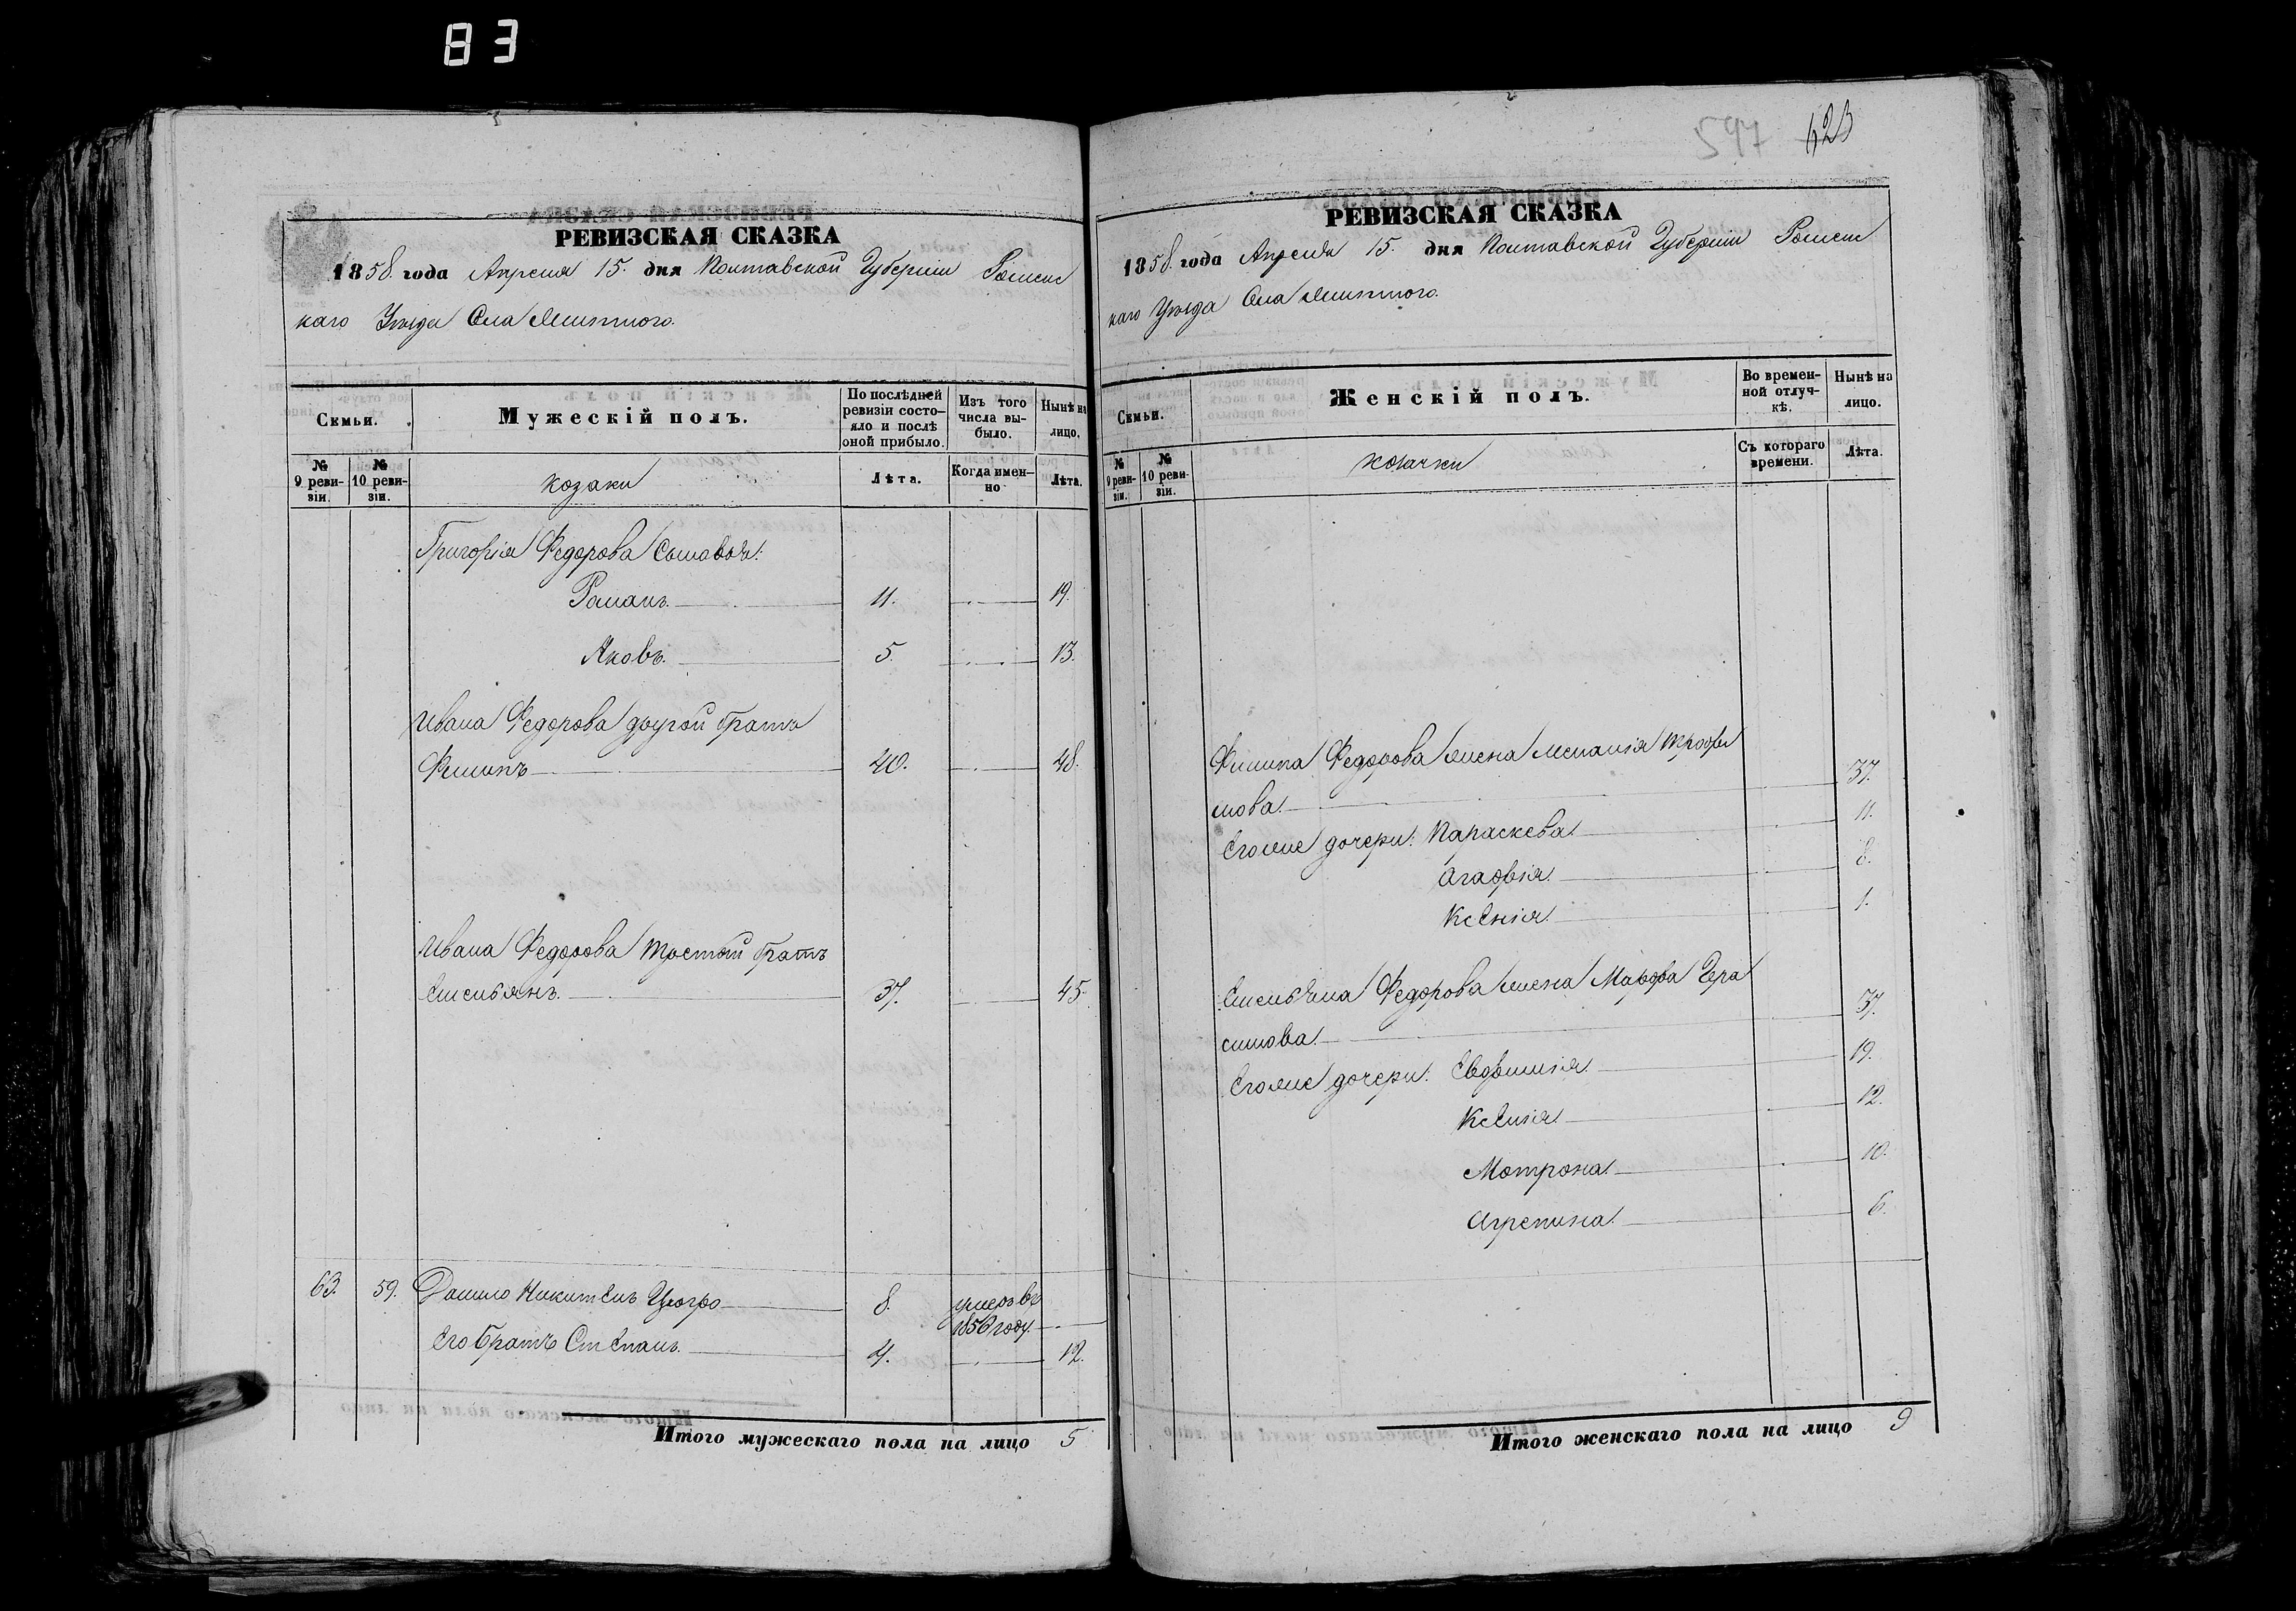 83
597 623
РЕВИЗСКАЯ СКАЗКА
1858 года Апреля 15. дня Полтавской Губерніи Ромен
каго Уѣзда Села
Семьи.
Мужескій полъ.
По послѣдней ревизіи состояло и послѣ оной прибыло.
Изъ того числа выбыло.
Нынѣ на лицо.
№ 9 ревизіи.
№ 10 ревизіи.
козаки
Лѣта.
Когда именно
Лѣта.
Григорія Федорова Сыновья:
Романъ. 11. 19.
Яковъ. 5. 13.
Ивана Федорова другой братъ
Филипъ 40. 48.
Ивана Федорова третій братъ
Емельянъ. 37. 45.
63. 59. Данило Никитенъ 8. умеръ въ
1856 году.
Его братъ Степанъ. 4. 12.
Итого мужескаго пола на лицо 5
РЕВИЗСКАЯ СКАЗКА
1858 года Апреля 15. дня Полтавской Губерніи Ромен
каго Уѣзда Села
Семьи.
Женскій полъ.
Во временной отлучкѣ.
Нынѣ на лицо.
№ 9 ревизіи.
№ 10 ревизіи.
козачки
Съ котораго времени.
Лѣта.
Филипа Федорова жена Меланія Трофи
мова. 37.
Егоже дочери: Параскева. 11.
Агафія. 8.
Ксенія. 1.
Емельяна Федорова жена Марфа Гера
симова. 37.
Егоже дочери: Евфимія. 19.
Ксенія. 12.
Мотрона. 10.
Агрепина. 6.
Итого женскаго пола на лицо 9